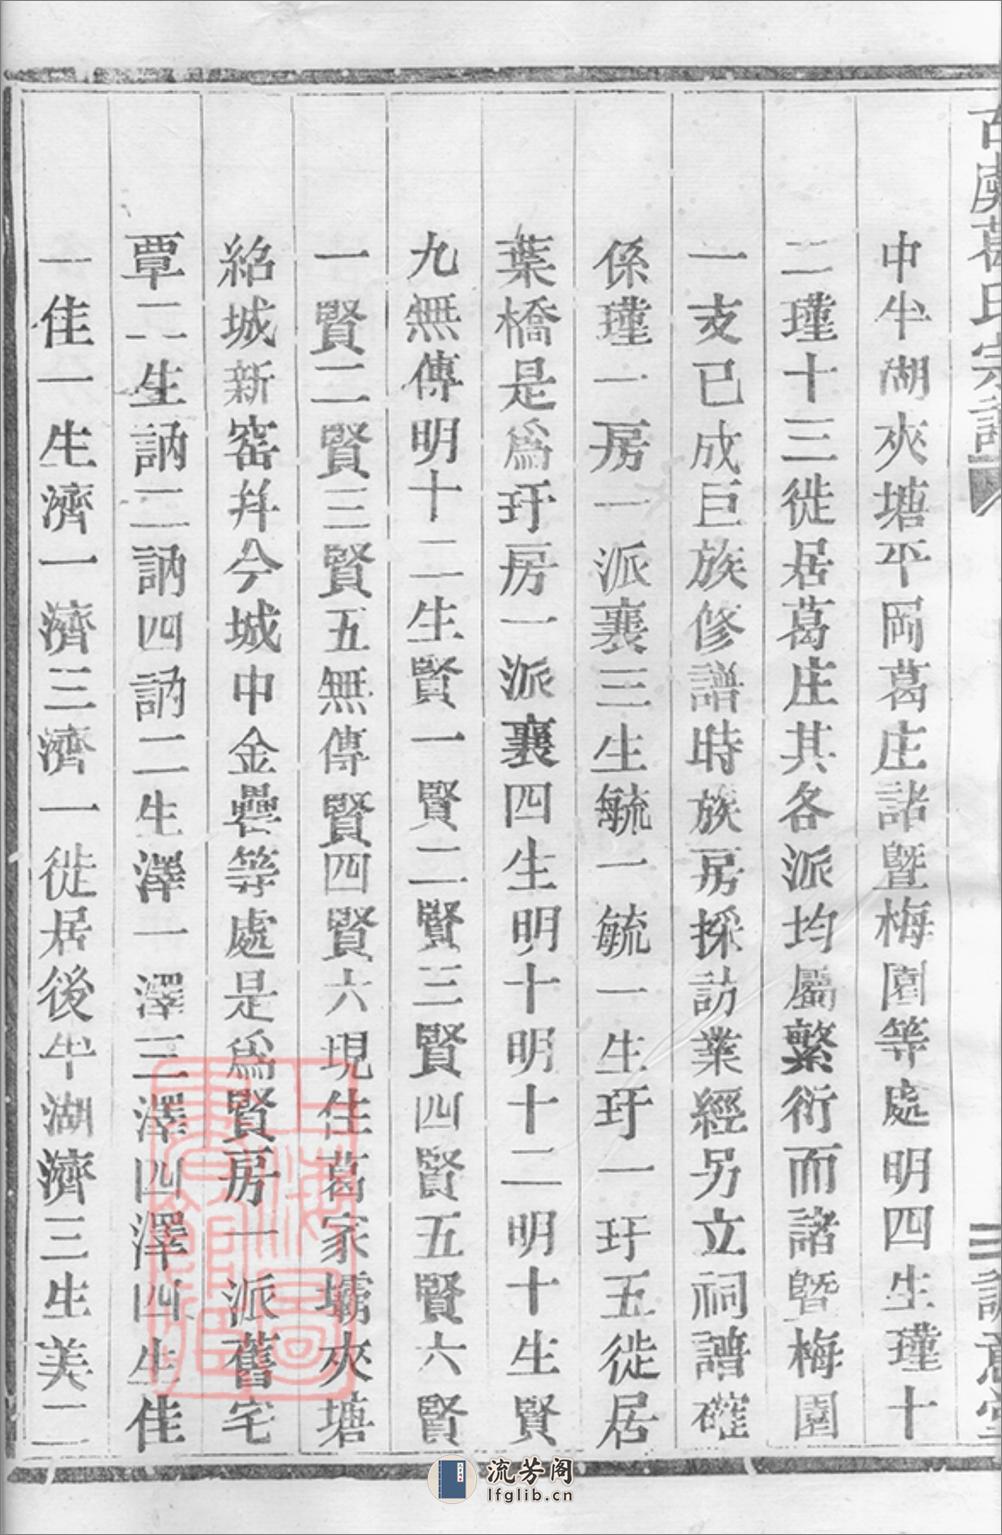 古虞葛氏宗譜
中牛湖夾塘平岡葛庄諸暨梅園等處明四生瑾十
二瑾十三徙居葛庄其各派均屬繁衍而諸暨梅園
一支已成巨族修譜時族房採訪業經另立祠譜確
係瑾一房一派襄三生毓一毓一生玗一玗五徙居
葉橋是爲玗房一派襄四生明十明十二明十生賢
九無傳明十二生賢一賢二賢三賢四賢五賢六賢
一賢二賢三賢五無傳賢四賢六現住葛家壩夾塘
給城新窑并今城中金罍等處是爲賢房一派舊宅
覃二生訥二訥四訥二生澤一澤三澤四澤四生佳
一佳一生濟一濟三濟一徙居後牛湖濟三生美二
上海圖書館藏
流芳阁
lfglib.cn